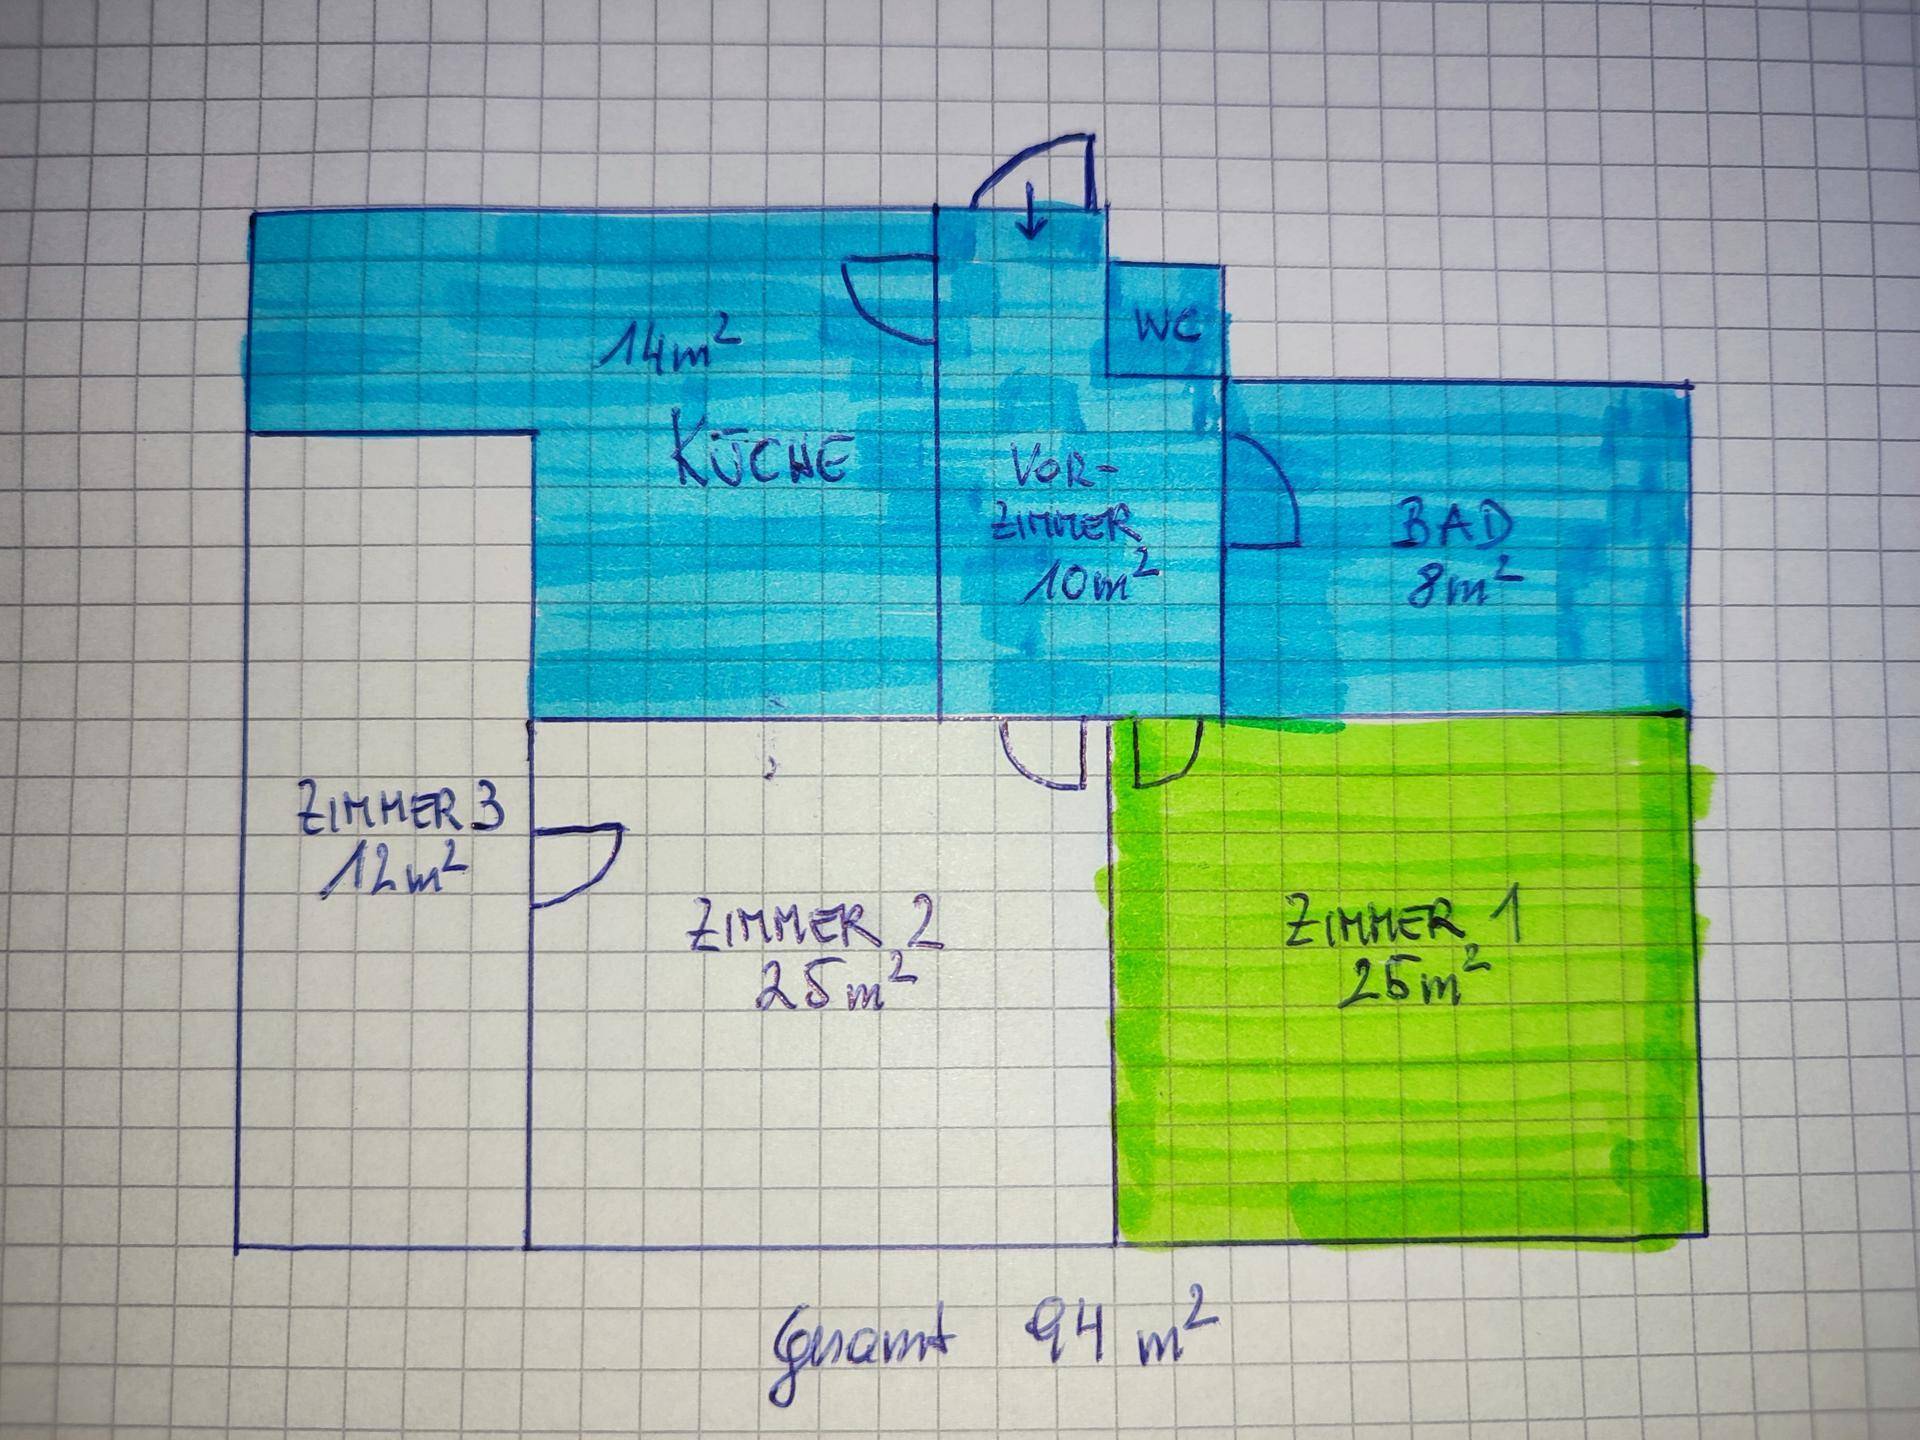 14m²
KÜCHE
WC
VOR-
ZIMMER
10m²
BAD
8m²
ZIMMER 3
12m²
ZIMMER 2
25m²
ZIMMER 1
25m²
Gesamt 94 m²